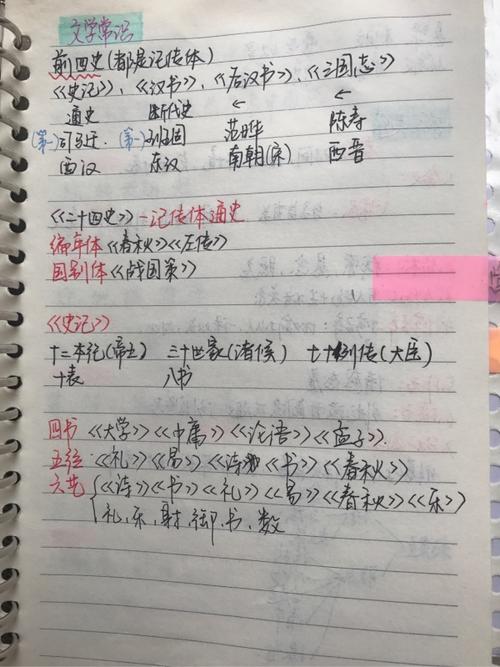 文学常识
前四史(都是记传体)
《史记》、《汉书》、《后汉书》、《三国志》
通史 断代史 ← ←
(第一)司马迁. (第一)班固 范晔 陈寿
西汉 东汉 南朝(宋) 西晋
《二十四史》-记传体通史
编年体《春秋》《左传》
国别体《战国策》
《史记》
十二本纪(帝王) 三十世家(诸候) 七十列传(大臣)
十表 八书
四书《大学》《中庸》《论语》《孟子》.
五经《礼》《易》《诗》《书》《春秋》
六艺{《诗》《书》《礼》《易》《春秋》《乐》
礼、乐、射、御、书、数